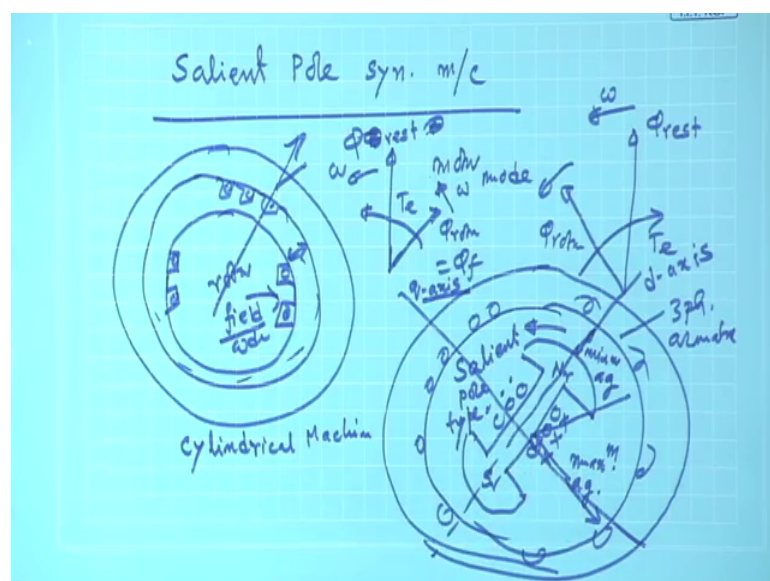 Salient Pole syn. m/c
Φrest
ω
Te
mode
Φrotor
= Φf
rotor
field
wdg
Cylindrical Machine
ω
Φrest
Φrotor
Te
d-axis
q-axis
3 ph.
Salient
pole
type
N
minm
ag
S
maxm
ag.